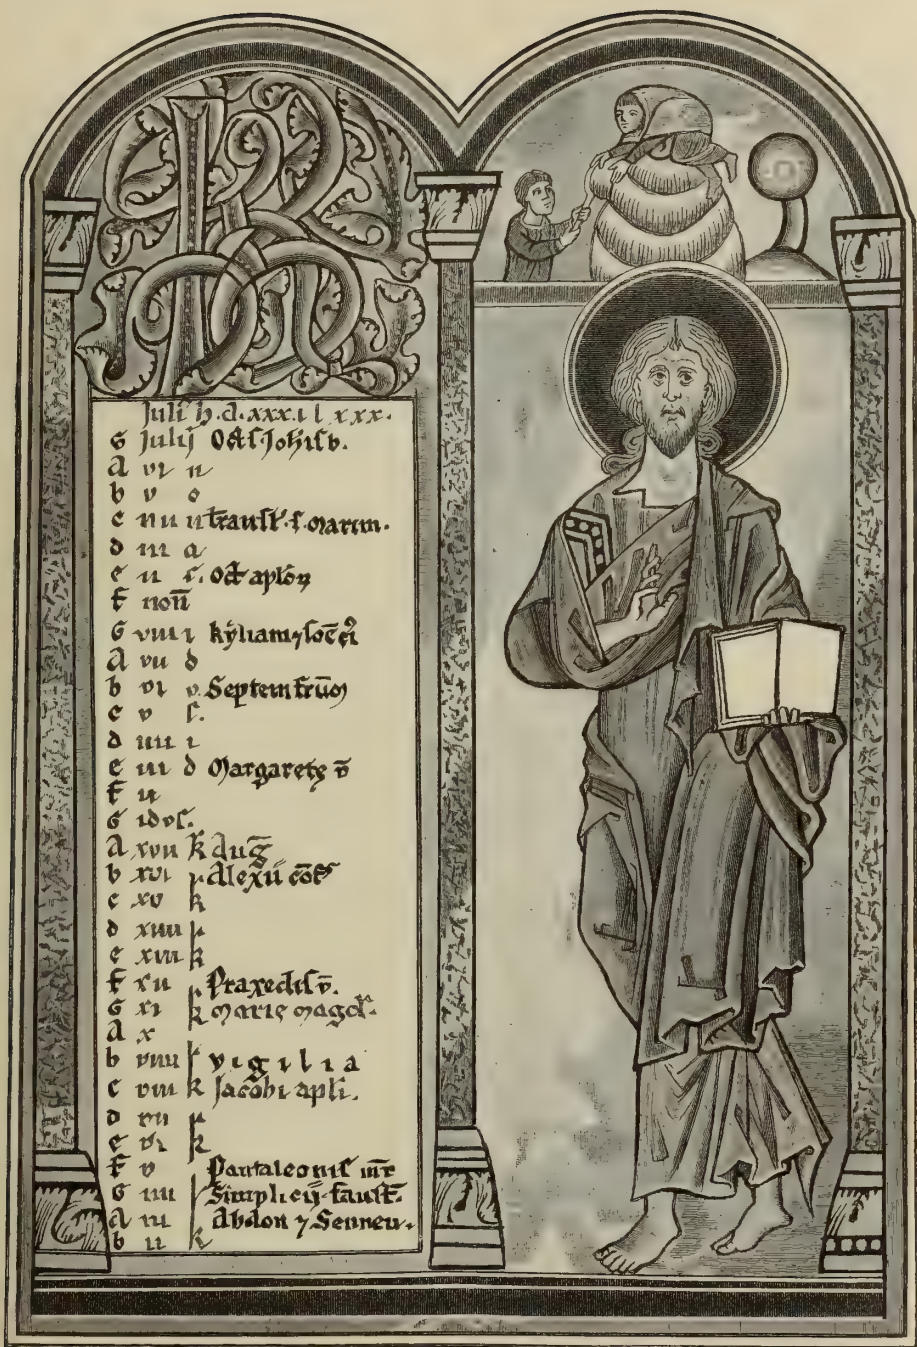 Juli h. d. xxx.i l xxx.
G Julij Oct S Johis b.
A vi n
b v o
c iiii n transl. S. Martin.
d iii a
e ii s. Oct aplor
F non̄
G viii i kyliani 7 soc̄ ei
A vii d
b vi v. Septem fr̄um
c v s.
d iiii i
e iii d Margaretę v̄
F ii
G idus.
A xvii k Aug̅
b xvi k Alexii cof̄
c xv k
d xiiii k
e xiii k
F xii k Praxedis v̄.
G xi k Marię Magd.
A x
b viiii k vigilia
c viii k Jacobi apli.
d vii k
e vi k
F v k Pantaleonis m̄r
G iiii k Simplicij. faust̄.
A iii k Abdon 7 Sennen.
b ii k